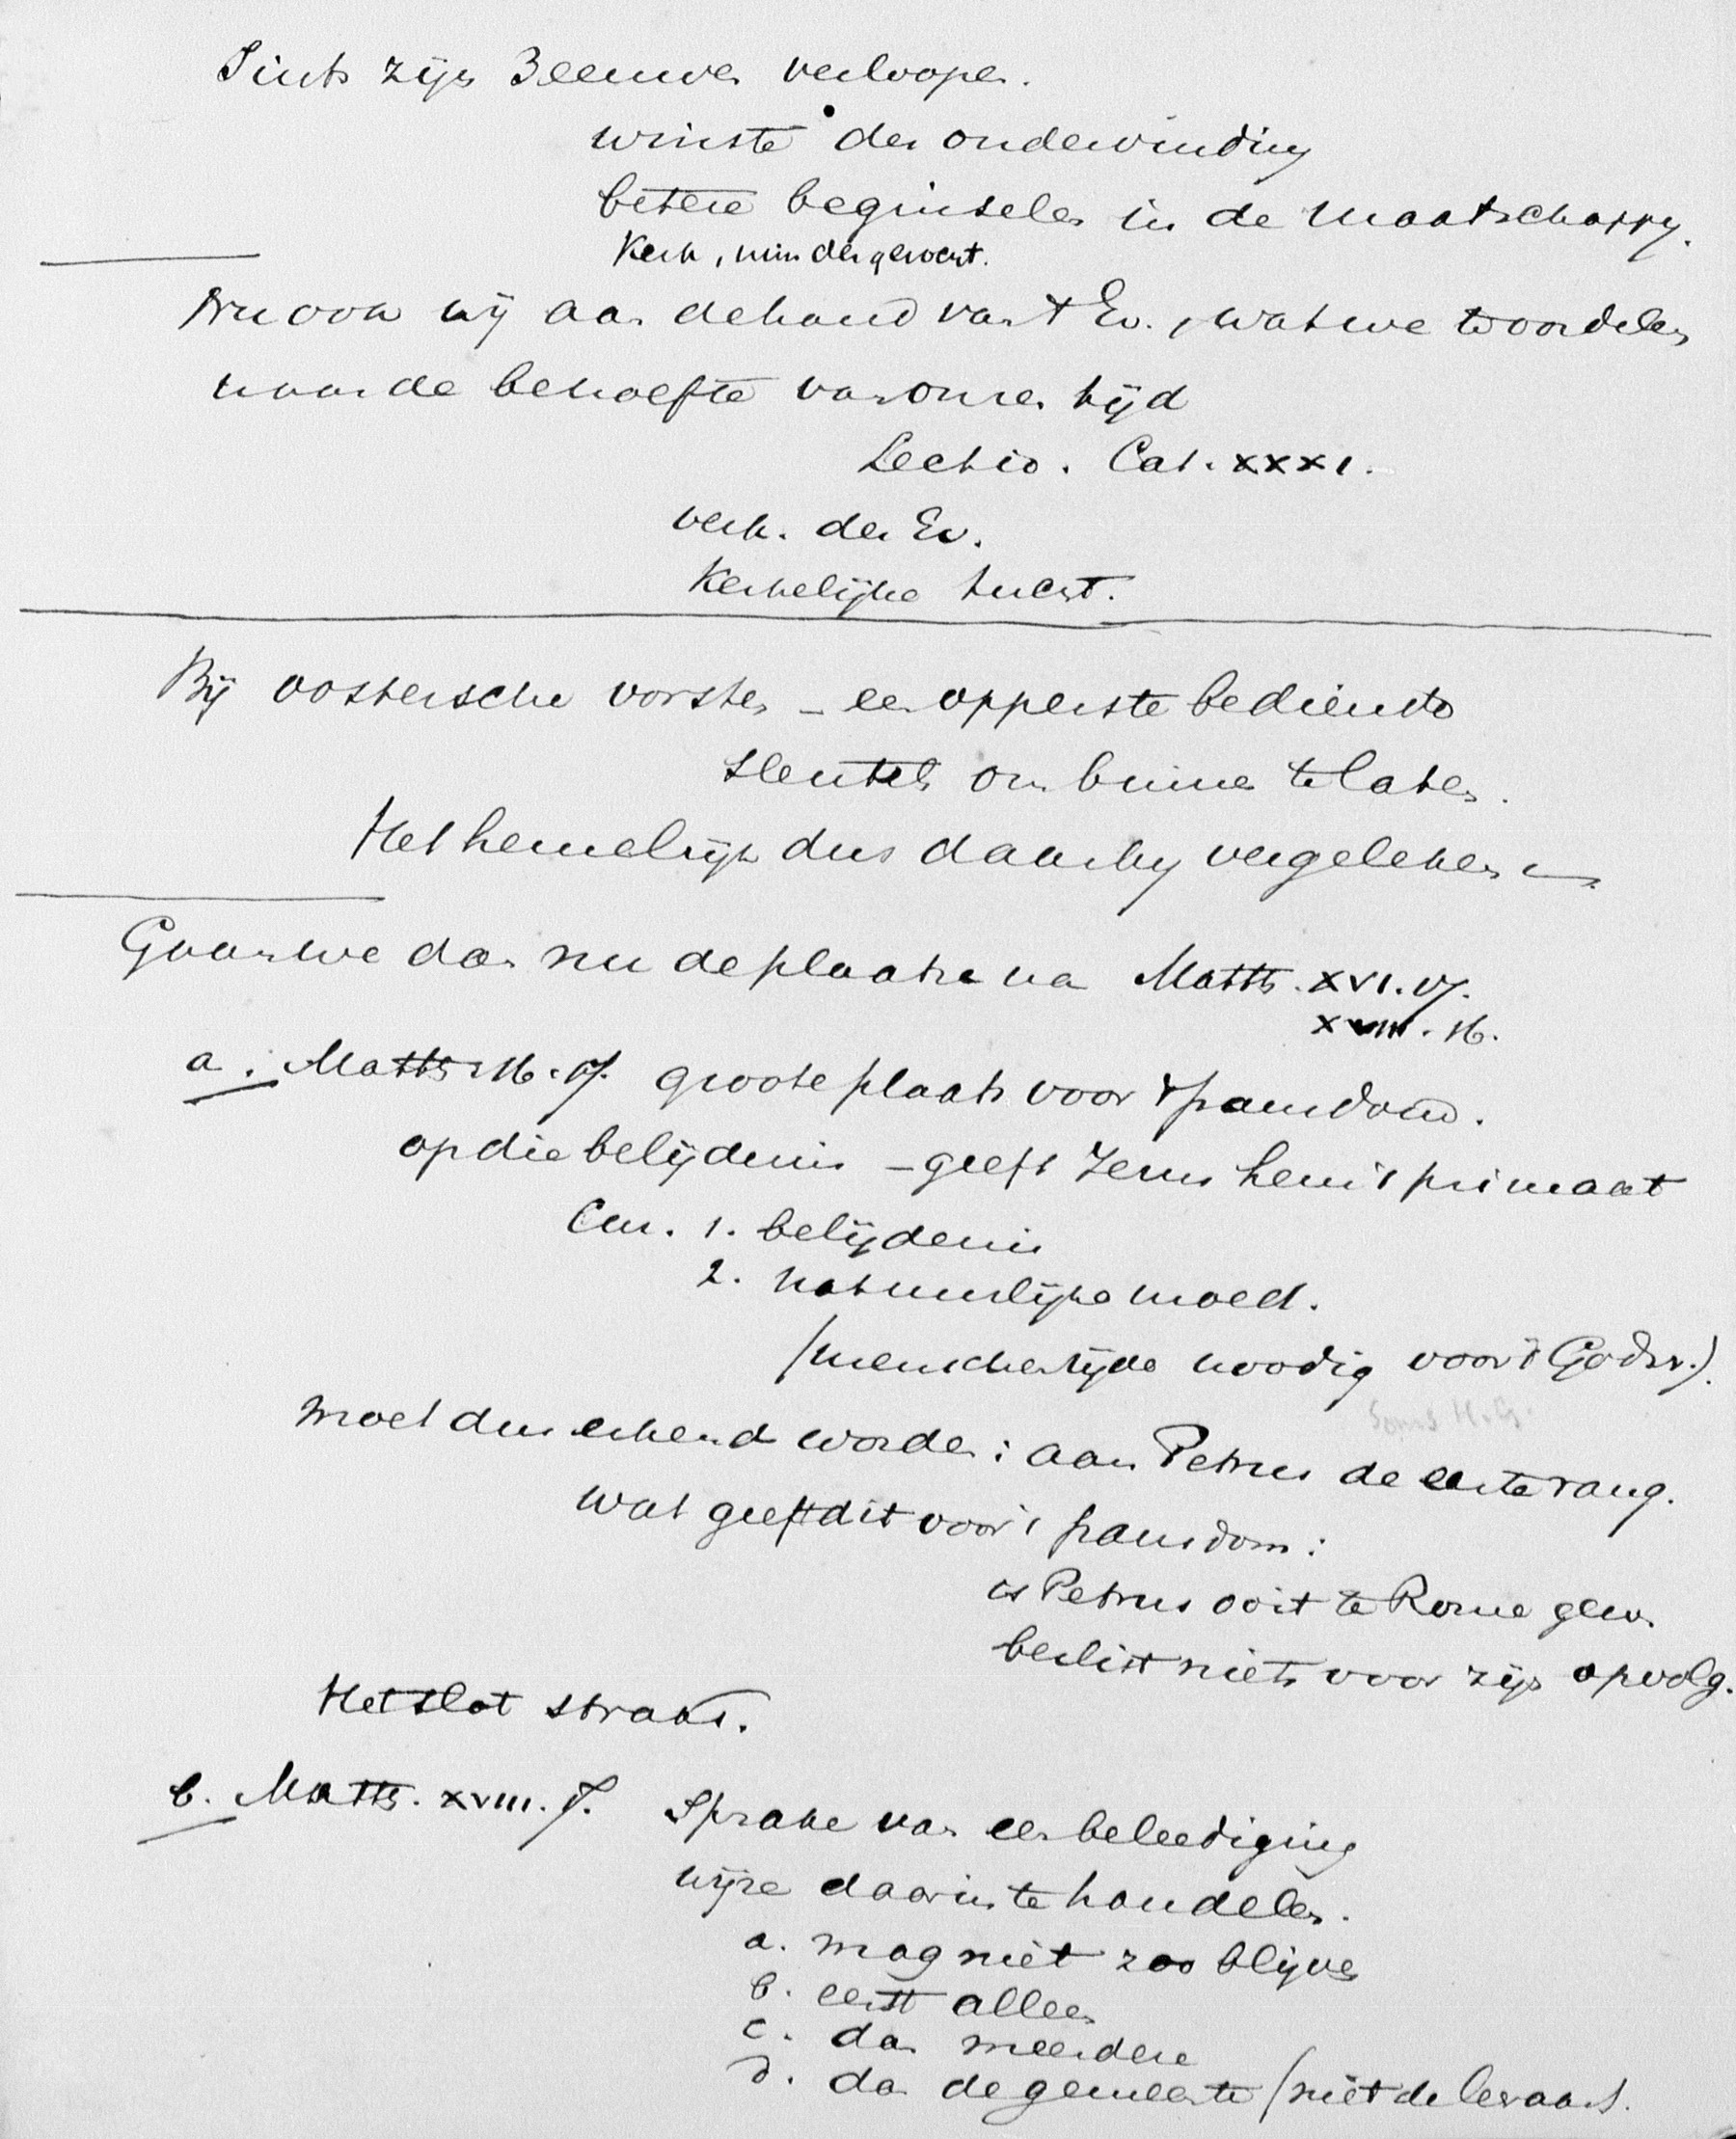 Sints zijn 3 eeuwen verloopen.
winste der ondervinding
betere beginselen in de maatschappy.
Kerk, minder gewent.
Nu ook wij aan de hand van 't Ev., wat we te oordelen
naar de behoefte van onzen tijd
Lectio. Cat. XXXI.
verk. der Ev.
Kerkelijke tucht.
Bij oostersche vorsten – een opperste bediende
sleutels om binnen te laten.
Het hemelrijk dus daarby vergeleken
Gaan we dan nu de plaatse na Matth. XVI. 17.
XVIII. 16.
a. Matth. 16. 17. groote plaats voor 't pausdom.
op die belijdenis – geeft Jezus hem 't primaat
Cur. 1. belijdenis
2. natuurlijke moed.
(menschelijke noodig voor 't Godsr.).
Soms H. G.
Moet dus erkend worden: aan Petrus de eerste rang.
Wat geeft dit voor 't pausdom:
is Petrus ooit te Rome gew.
beslist niets voor zijn opvolg.
Het slot straks.
b. Matth. XVIII.
Sprake van een beleediging
wijze daarin te handelen.
a. mag niet zoo blijven
b. eerst alleen
c. dan meerdere
d. dan de gemeente (niet de leeraars.